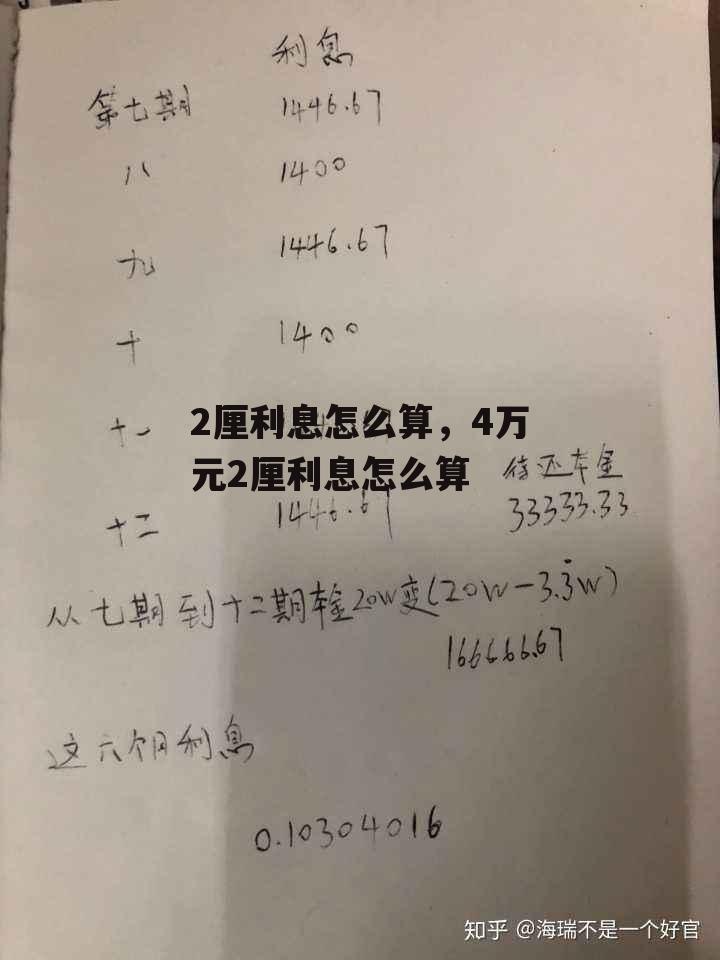 利息
第七期 1446.67
八 1400
九 1446.67
十 1400
十一
2厘利息怎么算，4万
元2厘利息怎么算
待还本金
十二 1446.67 33333.33
从七期到十二期本金20w变(20w-3.3w)
166666.67
这六个月利息
0.10304016
知乎 @海瑞不是一个好官